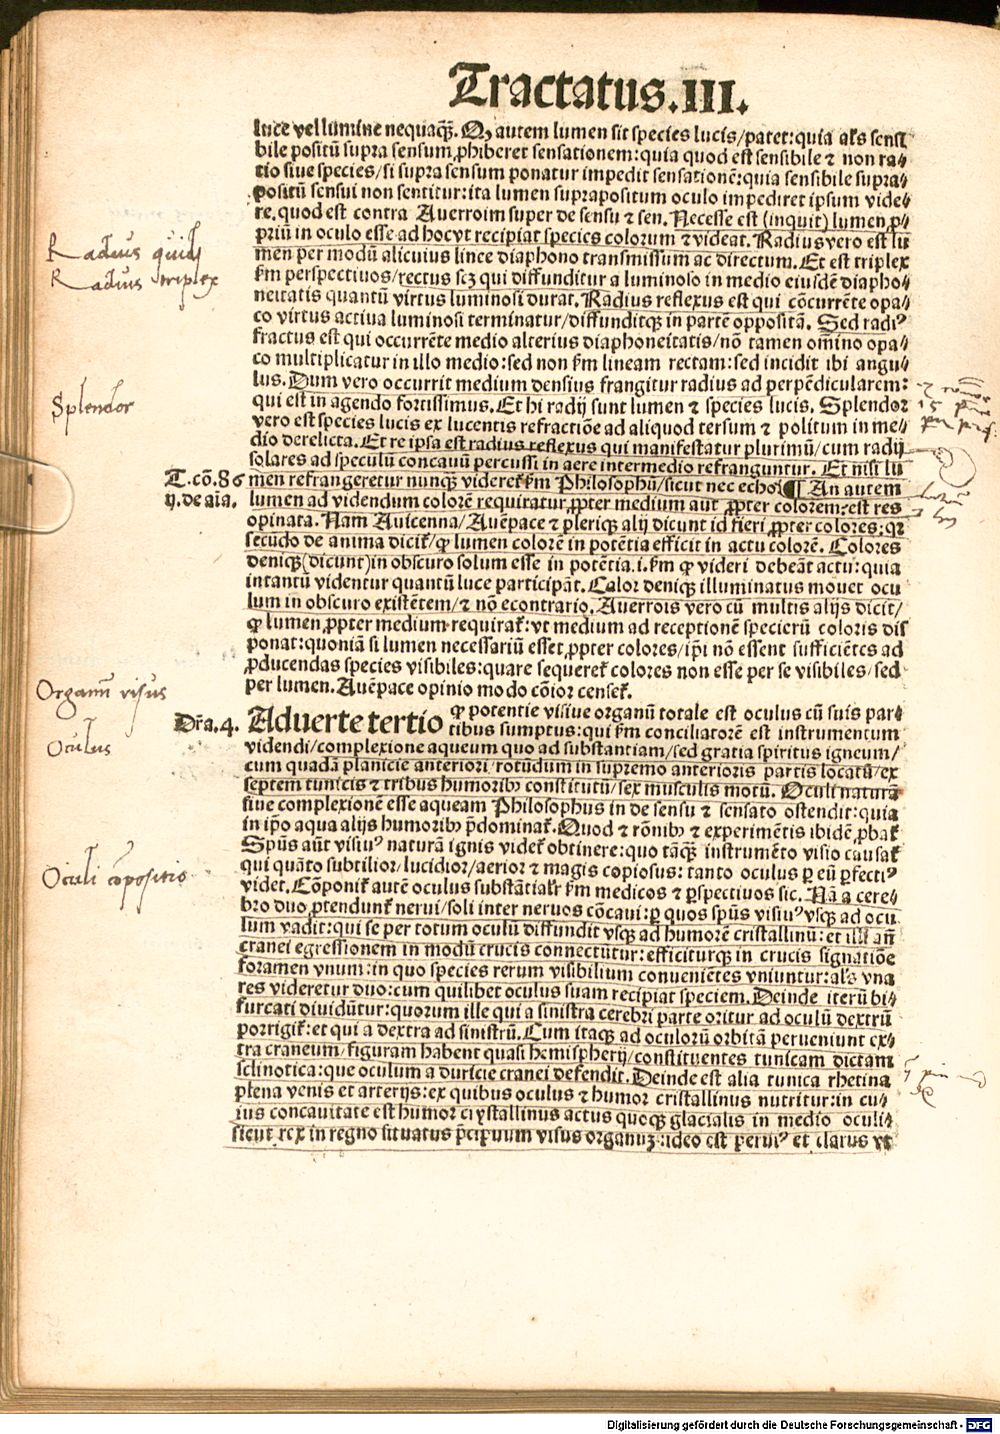 Tractatus.III.
luce vel lumine nequaq̃. Q, autem lumen sit species lucis/patet: quia al's sensi
bile positū supra sensum ꝓhiberet sensationem: quia quod est sensibile ⁊ non ra⸗
tio siue species/si supra sensum ponatur impedit sensationē: quia sensibile supra⸗
positū sensui non sentitur: ita lumen suprapositum oculo impediret ipsum vide⸗
re. quod est contra Auerroim super de sensu ⁊ sen. Necesse est (inquit) lumen ꝓ⸗
priū in oculo esse ad hoc vt recipiat species colorum ⁊ videat. Radius vero est lu
men per modū alicuius linee diaphono transmissum ac directum. Et est triplex
Radius quid
Radius triplex
km perspectiuos/rectus scz qui diffunditur a luminoso in medio eiusdē diapho⸗
neitatis quantū virtus luminosi durat. Radius reflexus est qui cōcurrēte opa⸗
co virtus actiua luminosi terminatur/diffunditqꝫ in partē oppositā. Sed radiꝰ
fractus est qui occurrēte medio alterius diaphoneitatis/nō tamen om̄ino opa⸗
co multiplicatur in illo medio: sed non km lineam rectam: sed incidit ibi angu⸗
lus. Dum vero occurrit medium densius frangitur radius ad perpēdicularem:
Splendor
qui est in agendo fortissimus. Et hi radij sunt lumen ⁊ species lucis. Splendor
vero est species lucis ex lucentis refractiōe ad aliquod tersum ⁊ politum in me⸗
dio derelicta. Et re ipsa est radius reflexus qui manifestatur plurimū/cum radij
solares ad speculū concauū percussi in aere intermedio refranguntur. Et nisi lu
T.cō.86
ij.de aīa.
men refrangeretur nunqꝫ videret' km Philosophū/sicut nec echo. ¶ An autem
lumen ad videndum colorē requiratur ꝓpter medium aut ꝓpter colorem: est res
opinata. Nam Auicenna/Auēpace ⁊ pleriqꝫ alij dicunt id fieri ꝓpter colores: qꝛ
secūdo de anima dicit'/ꝙ lumen colorē in potētia efficit in actu colorē. Colores
deniqꝫ (dicunt) in obscuro solum esse in potētia.i.km ꝙ videri debeāt actu: quia
intantū videntur quantū luce participāt. Calor deniqꝫ illuminatus mouet ocu
lum in obscuro existētem/⁊ nō econtrario. Auerrois vero cū multis alijs dicit/
ꝙ lumen ꝓpter medium requirat': vt medium ad receptionē specierū coloris dis
ponat: quoniā si lumen necessariū esset ꝓpter colores/ip̄i nō essent sufficiētes ad
ꝓducendas species visibiles: quare sequeret' colores non esse per se visibiles/sed
per lumen. Auēpace opinio modo cōior censet'.
Organū visus
Dr̄a.4.
Aduerte tertio ꝙ potentie visiue organū totale est oculus cū suis par⸗
tibus sumptus: qui km conciliatorē est instrumentum
Oculus
videndi/complexione aqueum quo ad substantiam/sed gratia spiritus igneum/
cum quadā planicie anteriori/rotūdum in supremo anterioris partis locatū/ex
septem tunicis ⁊ tribus humoribꝰ constitutū/sex musculis motū. Oculi naturā
siue complexionē esse aqueam Philosophus in de sensu ⁊ sensato ostendit: quia
in ip̄o aqua alijs humoribꝰ p̄dominat'. Quod ⁊ rōnibꝰ ⁊ experimētis ibidē ꝓbat'
Spūs aūt visiuꝰ naturā ignis videt' obtinere: quo tāqꝫ instrumēto visio causat'
Oculi cōpositio
qui quāto subtilior/lucidior/aerior ⁊ magis copiosus: tanto oculus ꝑ eū ꝑfectiꝰ
videt. Cōponit' autē oculus substātialr' km medicos ⁊ ꝑspectiuos sic. Nā a cere⸗
bro duo ꝓtendunt' nerui/soli inter neruos cōcaui: ꝑ quos spūs visiuꝰ vsqꝫ ad ocu
lum vadit: qui se per totum oculū diffundit vsqꝫ ad humorē cristallinū: et illi an̄
cranei egressionem in modū crucis connectūtur: efficiturqꝫ in crucis signatiōe
foramen vnum: in quo species rerum visibilium conueniētes vniuntur: al's vna
res videretur duo: cum quilibet oculus suam recipiat speciem. Deinde iterū bi⸗
furcati diuidūtur: quorum ille qui a sinistra cerebri parte oritur ad oculū dextrū
porrigit': et qui a dextra ad sinistrū. Cum itaqꝫ ad oculorū orbitā perueniunt ex⸗
tra craneum/figuram habent quasi hemispherij/constituentes tunicam dictam
sclinotica: que oculum a duricie cranei defendit. Deinde est alia tunica rhetina
plena venis et arterijs: ex quibus oculus ⁊ humor cristallinus nutritur: in cu⸗
ius concauitate est humor crystallinus actus quoqꝫ glacialis in medio oculi⸗
sicut rex in regno situatus p̄cipuum visus organuꝫ: ideo est ꝑuiꝰ et clarus vt
Digitalisierung gefördert durch die Deutsche Forschungsgemeinschaft - DFG